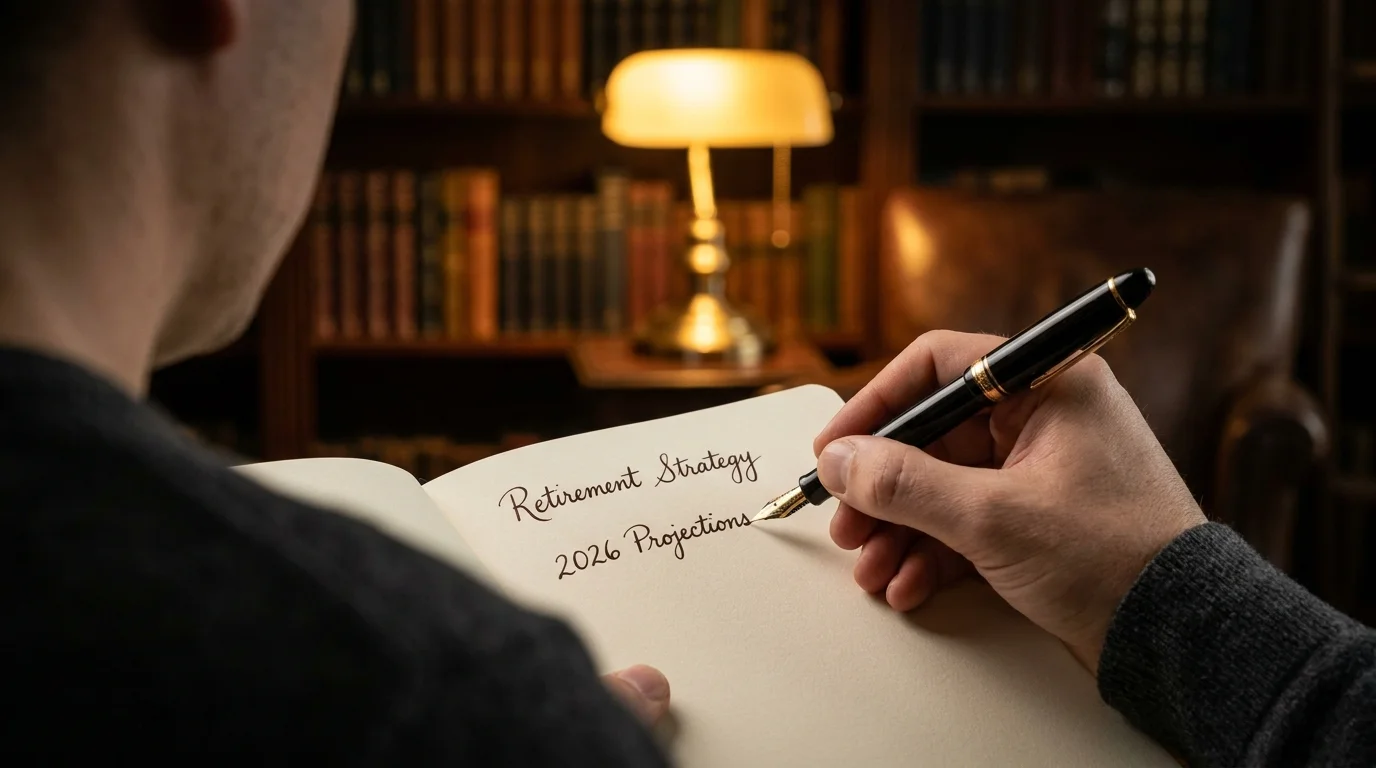 Retirement Strategy
2026 Projections